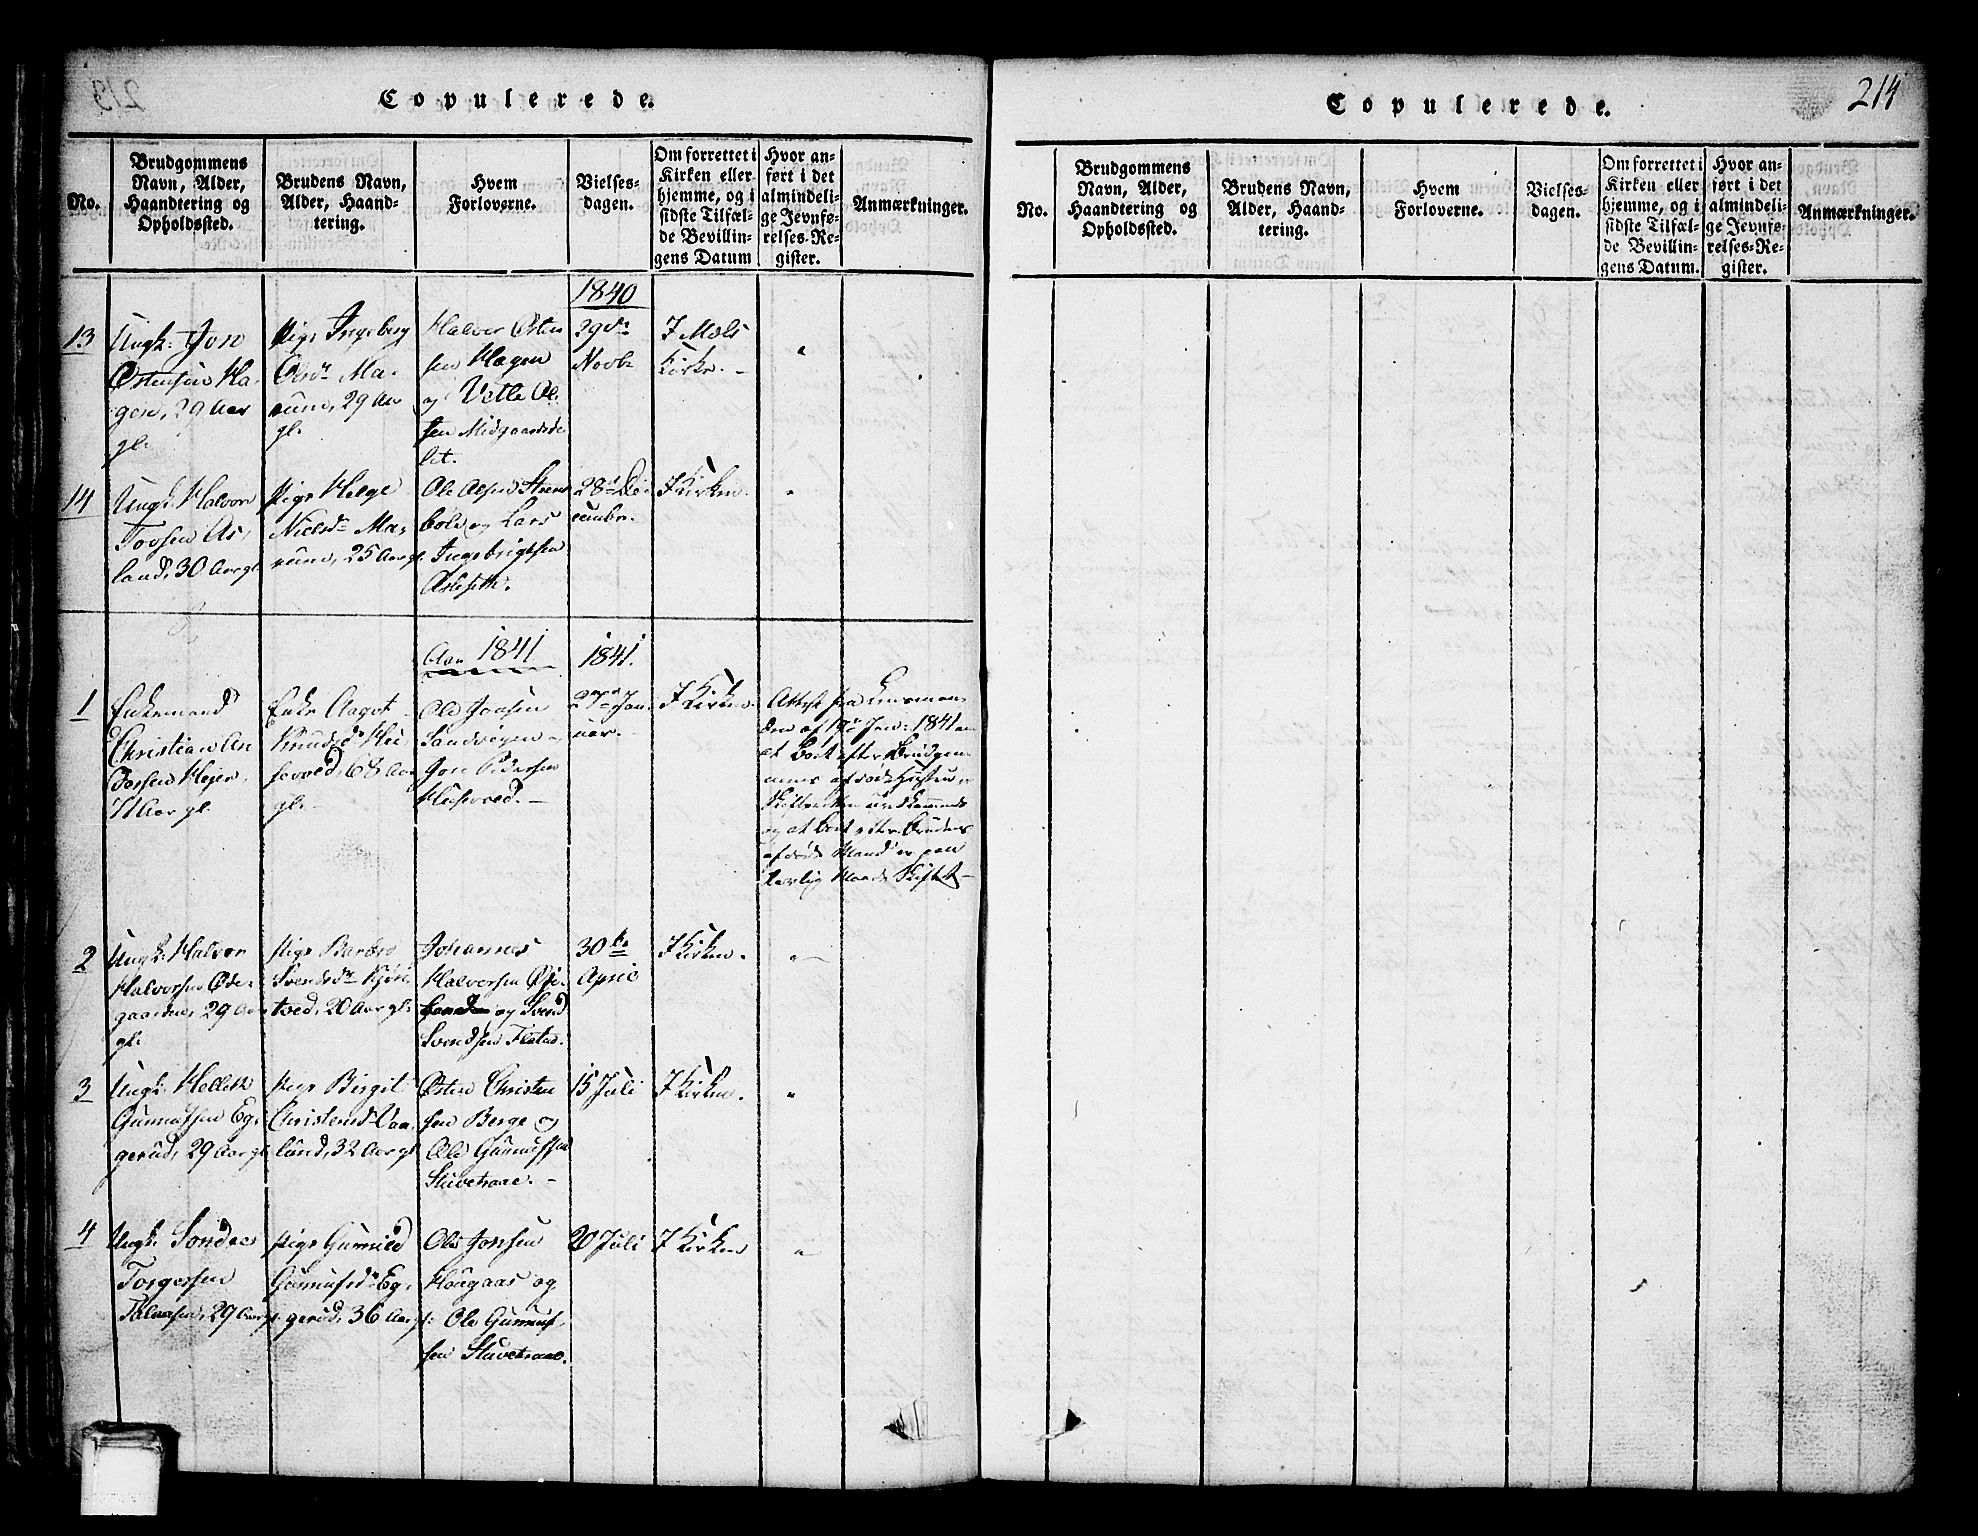 Copulerede.
No.
Brudgommens
Navn, Alder,
Haandtering og
Opholdssted.
Brudens Navn,
Alder, Haand-
tering.
Hvem
Forloverne.
Vielses-
dagen.
Om forrettet i
Kirken eller
hjemme, og i
sidste Tilfæl-
de Bevillin-
gens Datum
Hvor an-
ført i det
almindeli-
ge Jevnfø-
relses-Re-
gister.
Anmærkninger.
1840
13
Ungk: Jon
Østensen Ha-
gen, 29 Aar
gl.
Pige Ingeborg
Olsdr Ma-
rum, 29 Aar
gl.
Halvor Østen
sen Hagen
og Vetle Ol-
sen Midgaards
29de
Novbr
I Mæls
Kirke. -
"
14
Ungk. Halvor
Tovsen Aas-
land, 30 Aar gl.
Pige Helge
Nielsdr Ma-
rum, 25 Aar gl.
Ole Olsen
og Lars
Ingebrigtsen
28de De-
cembr.
I Kirken.
"
Aar 1841
1841.
1
Enkemand
Christian An
Hejen,
71 Aar gl.
Enke Aagot
Knudsdr
68 Aar
gl. -
Ole Joasen
Sandvigen -
Jon Pedersen
27de Jan-
uar. -
I Kirken.
Attest fra Lensman-
den af 19de Jan: 1841 om
at Boet efter Brudgom-
mens afdøde Hustru er
og at Boet efter Brudens
afdøde Mand er paa
lovlig Maade skiftet -
2
Ungk. Halvor
Halvorsen Øde-
gaarden, 29 Aar
gl.
Pige Barbro
Svendsdr
20 Aar gl.
Johannes
Halvorsen
og Svend
Svendsen
30te
April
I Kirken.
"
3
Ungk. Hellek
Gunnufsen Eg-
gerud, 29 Aar gl.
Pige Birgit
Christensdr Vaa-
lund, 32 Aar gl
Østen Christen
sen Berge og
Ole Gunnufsen
Stuvetraae. -
15 Juli
I Kirken.
"
4
Ungk. Sondre
Torgersen
29 Aar gl.
Pige Gunild
Gunnufsdr Eg-
gerud, 36 Aar gl.
Ole Jonsen
Hougaas og
Ole Gunnuf-
sen Stuvetraae.
20 Juli
I Kirken
"
Copulerede.
214
No.
Brudgommens
Navn, Alder,
Haandtering og
Opholdssted.
Brudens Navn,
Alder, Haand-
tering.
Hvem
Forloverne.
Vielses-
dagen.
Om forrettet i
Kirken eller
hjemme, og i
sidste Tilfæl-
de Bevillin-
gens Datum.
Hvor an-
ført i det
almindeli-
ge Jevnfø-
relses-Re-
gister.
Anmærkninger.